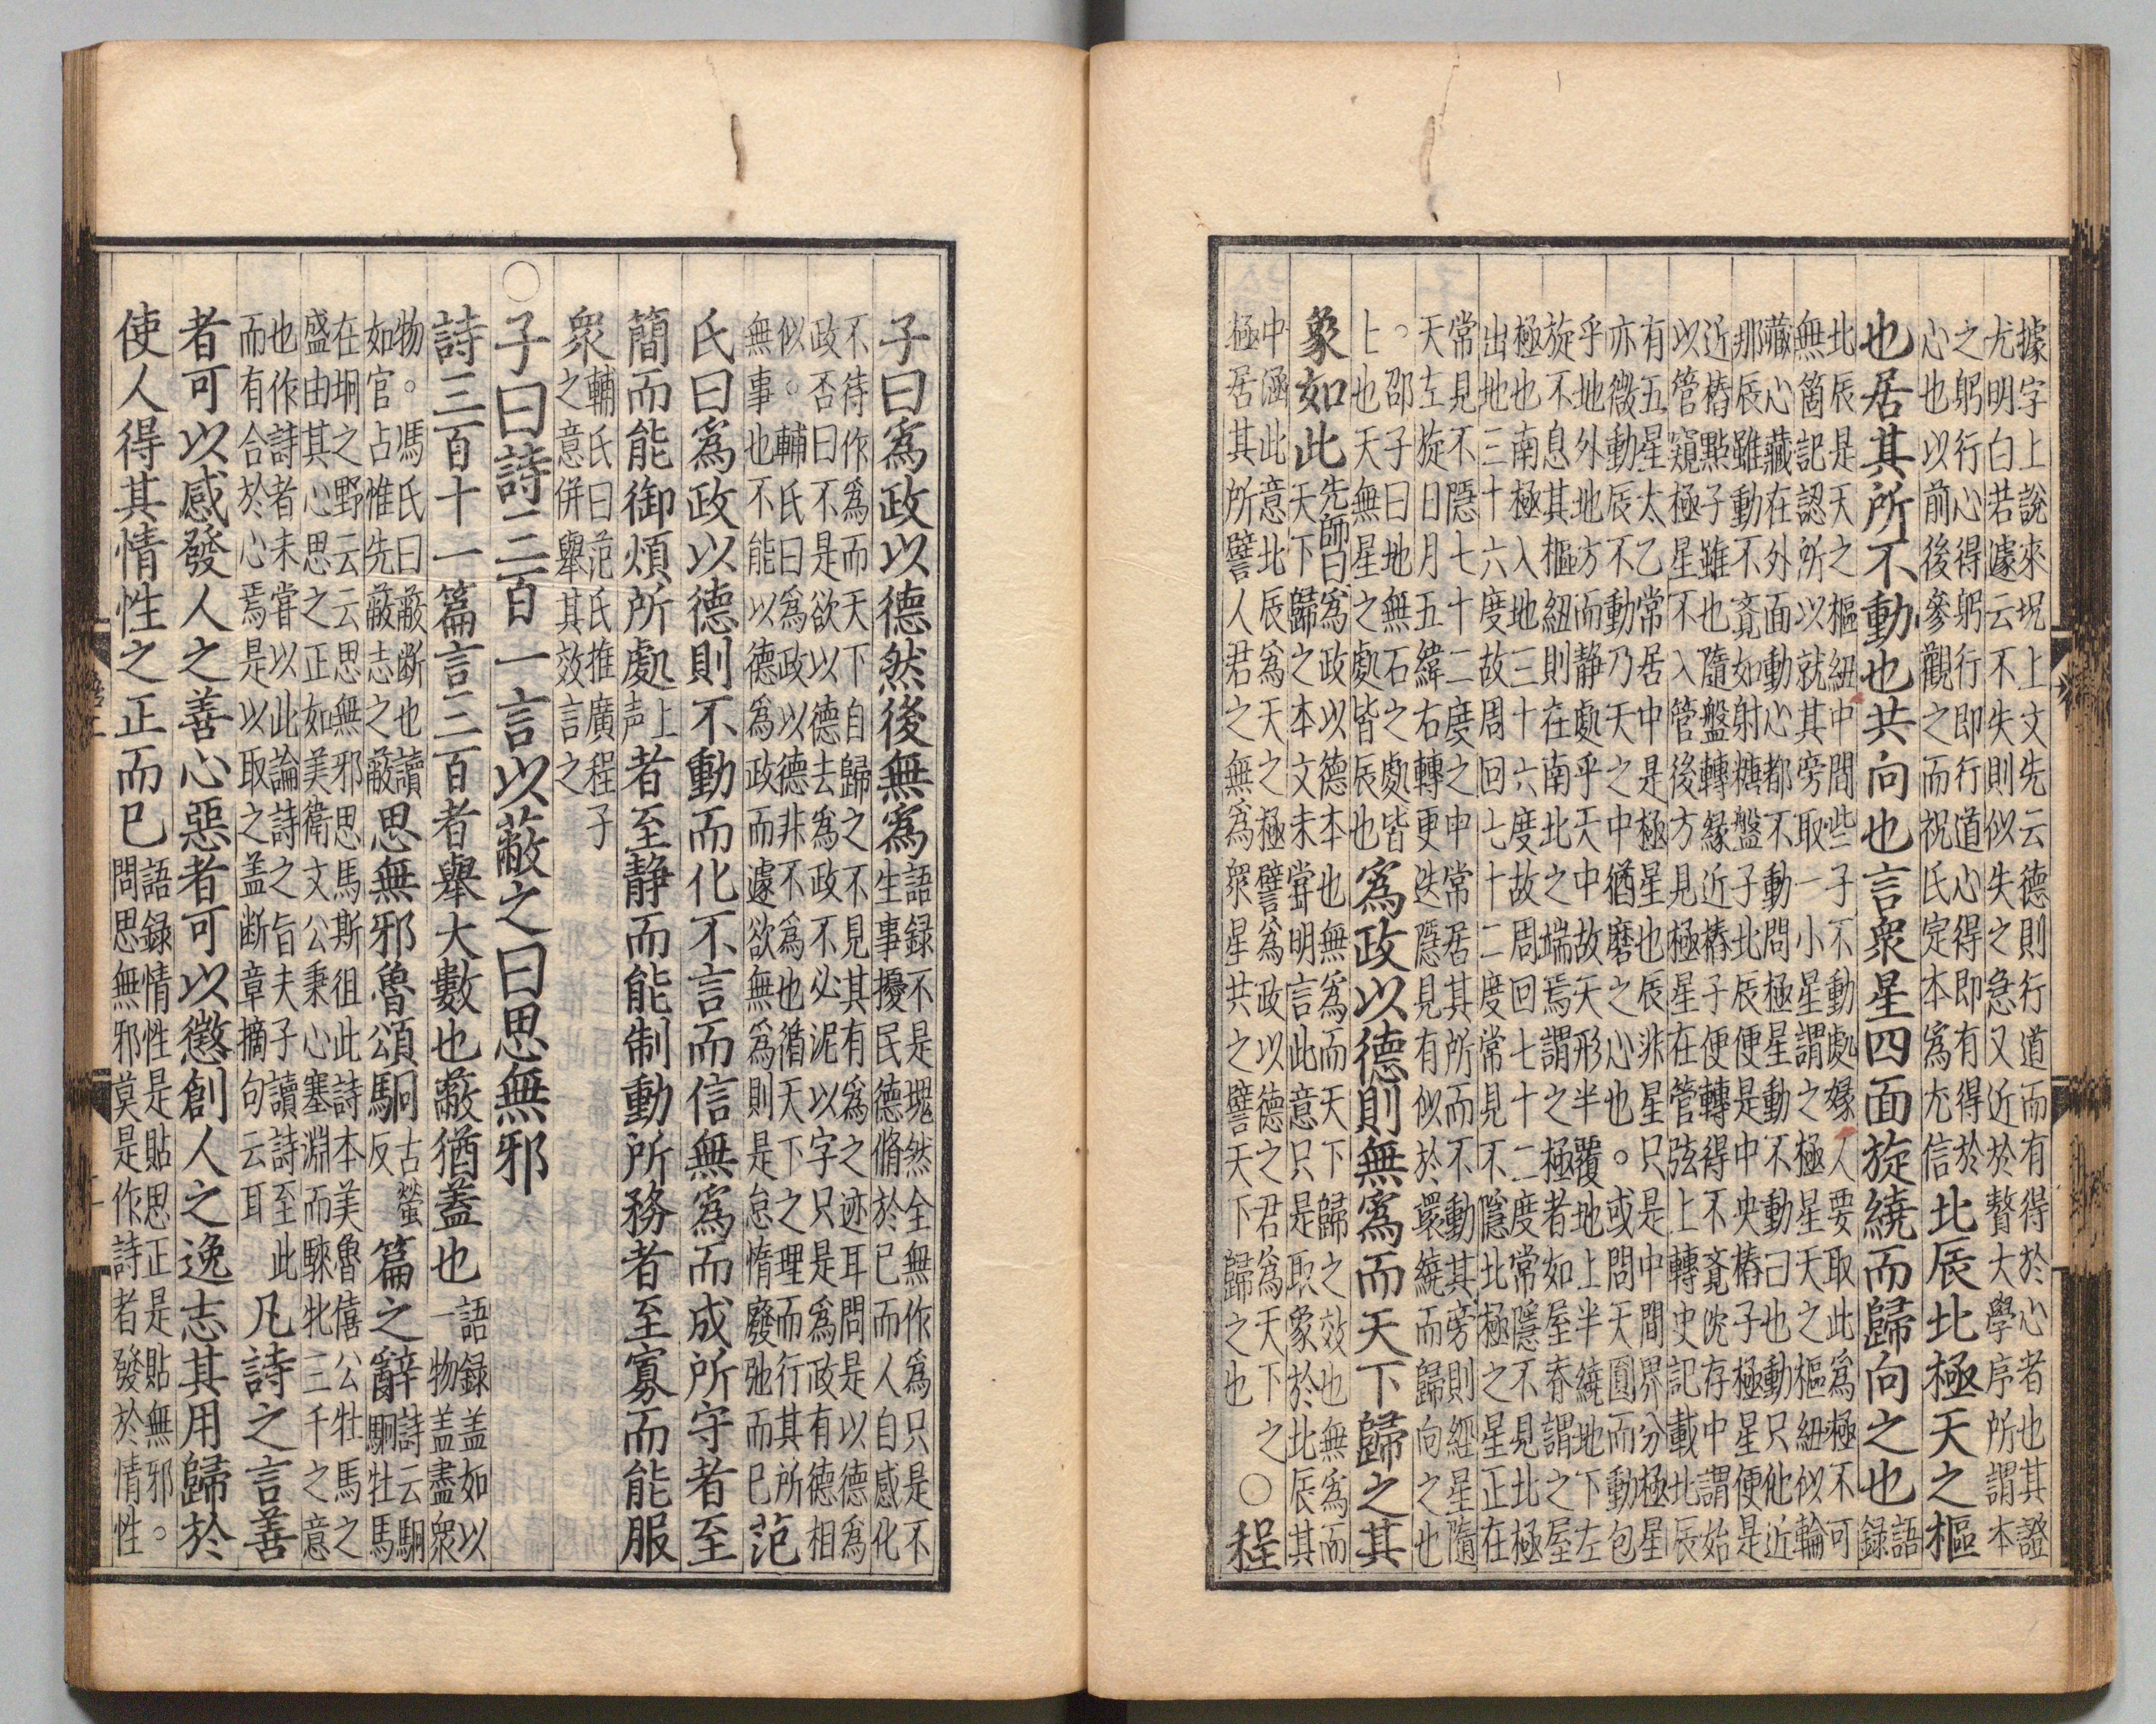 據字上說來況上文先云德則行道而有得於心者也其證
尤明白若遽云不失則似失之急又近於贅大學序所謂本
之躬行心得躬行即行道心得即有得於
心也以前後參觀之而祝氏定本為尤信
北辰北極天之樞
也居其所不動也共向也言衆星四面旋繞而歸向之也語
録
北辰是天之樞紐中間些子不動處緣人要取此為極不可
無箇記認所以就其旁取一小星謂之極星天之樞紐似輪
藏心藏在外面動心都不動問極星動不動曰也動只他近
那辰雖動不覔如射糖盤子北辰便是中央樁子極星便是
近樁點子雖也隨盤轉緣近樁子便轉得不覔沈存中謂始
以管窺極星不入管後方見極星在管弦上轉史記載北辰
有五星太乙常居中是極星也辰非星只是中間界分極星
亦微動辰不動乃天之中猶磨之心也。或問天圓而動包
乎地外地方而静處乎天中故天形半覆地上半繞地下左
旋不息其樞紐則在南北之端焉謂之極者如屋脊謂之屋
極也南極入地三十六度故周回七十二度常隱不見北極
出地三十六度故周回七十二度常見不隱北極之星正在
常見不隱七十二度之中常居其所而不動其旁則經星隨
天左旋日月五緯右轉更迭隱見有似於環繞而歸向之也
。邵子曰地無石之處皆
上也天無星之處皆辰也
為政以德則無為而天下歸之其
象如此先師曰為政以德本也無為而天下歸之效也無為而
天下歸之本文未嘗明言此意只是取象於北辰其
中涵此意北辰為天之極譬為政以德之君為天下之
極居其所譬人君之無為衆星共之譬天下歸之也
○程
子曰為政以德然後無為語録不是塊然全無作為只是不
生事擾民德脩於已而人自感化
不待作為而天下自歸之不見其有為之迹耳問是以德為
政否曰不是欲以德去為政不必泥以字只是為政有德相
似。輔氏曰為政以德非不為也循天下之理而行其所
無事也不能以德為政而遽欲無為則是怠惰廢弛而已
范
氏曰為政以德則不動而化不言而信無為而成所守者至
簡而能御煩所處上
声者至静而能制動所務者至寡而能服
衆輔氏曰范氏推廣程子
之意併舉其效言之
○子曰詩三百一言以蔽之曰思無邪
詩三百十一篇言三百者舉大數也蔽猶蓋也語録盖如以
一物盖盡衆
物。馮氏曰蔽断也讀
如官占惟先蔽志之蔽
思無邪魯頌駉古螢
反篇之辭詩云駉
駉牡馬
在坰之野云云思無邪思馬斯徂此詩本美魯僖公牡馬之
盛由其心思之正如美衛文公秉心塞淵而騋牝三千之意
也作詩者未嘗以此論詩之旨夫子讀詩至此
而有合於心焉是以取之盖断章摘句云耳
凡詩之言善
者可以感發人之善心惡者可以懲創人之逸志其用歸於
使人得其情性之正而已語録情性是貼思正是貼無邪。
問思無邪莫是作詩者發於情性